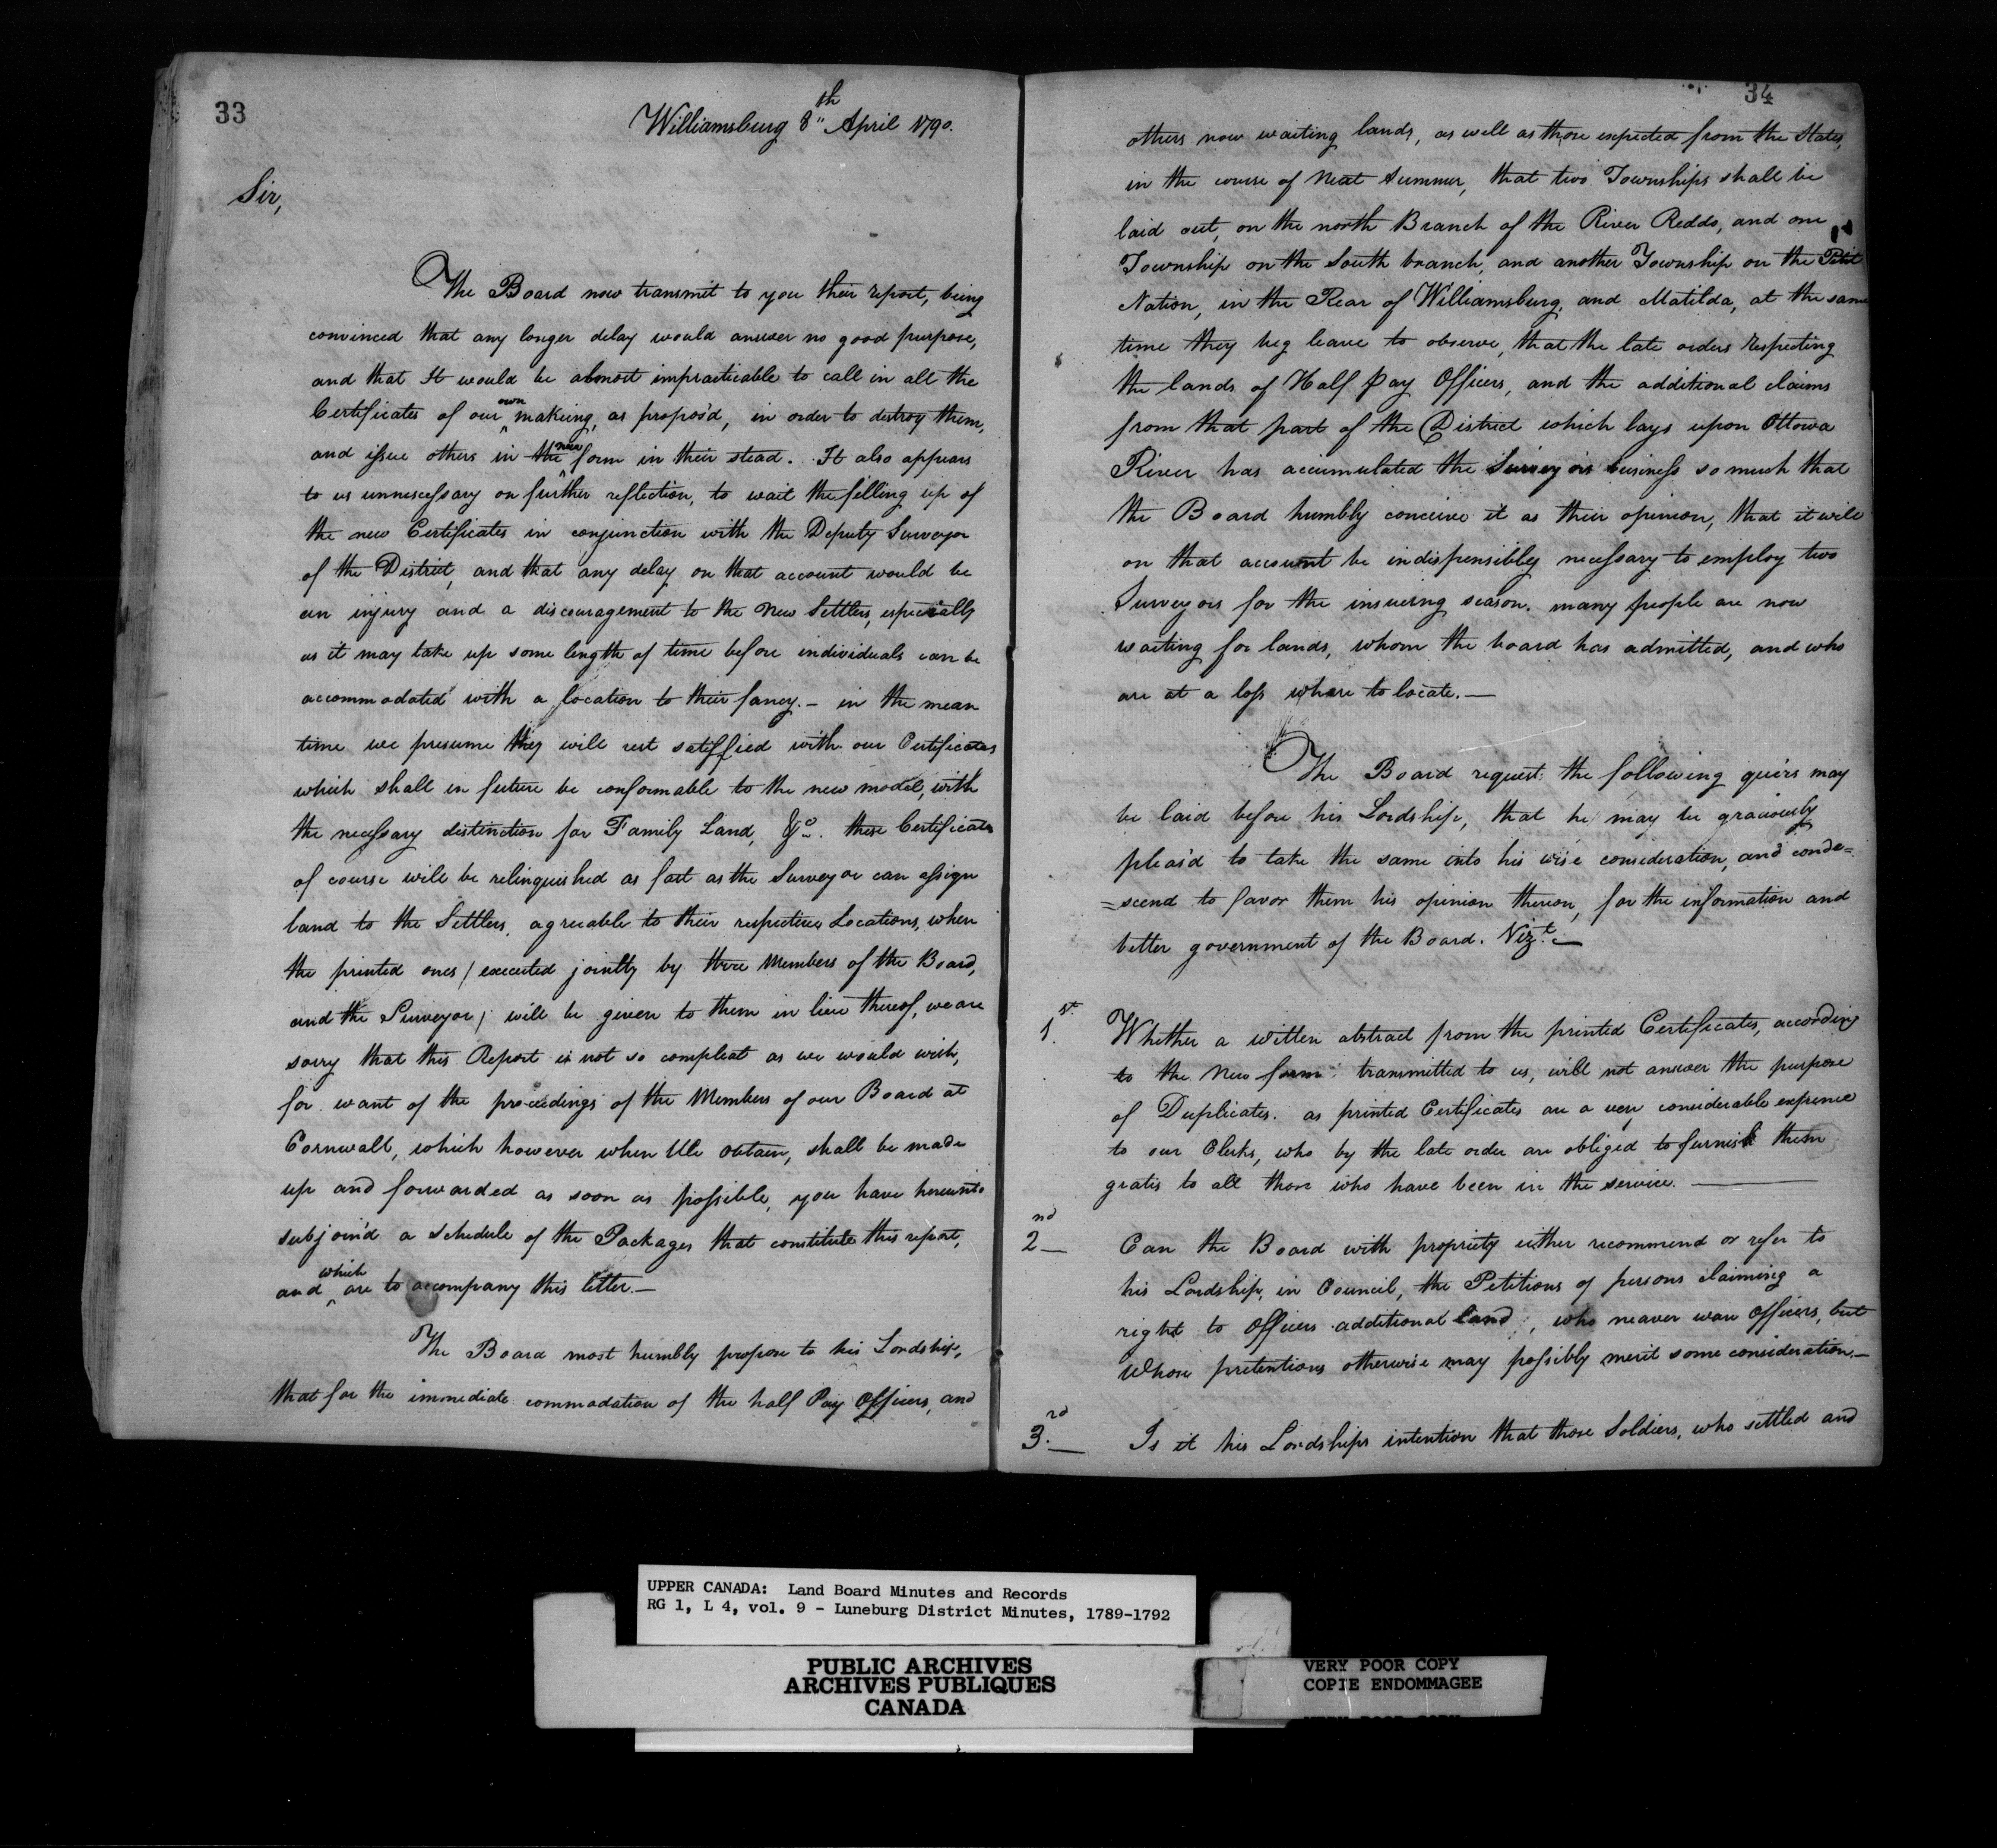 33
Williamsburg 8th April 1790.
Sir,
The Board now transmit to you their report, being
convinced that any longer delay would answer no good purpose,
and that It would be almost impracticable to call in all the
Certificates of our own makeing, as propos'd, in order to destroy them,
and issue others in the new form in their stead. It also appears
to us unnecessary on further reflection, to wait the filling up of
the new Certificates in conjunction with the Deputy Surveyor
of the District, and that any delay on that account would be
an injury and a discouragement to the New Settlers, especially
as it may take up some length of time before individuals can be
accommodated with a location to their fancy. — in the mean
time we presume they will rest satisfied with our Certificates
which shall in future be conformable to the new model, with
the necessary distinction for Family Land, &c. these Certificates
of course will be relinquished as fast as the Surveyor can assign
land to the Settlers, agreeable to their respective Locations, when
the printed ones / executed jointly by three Members of the Board,
and the Surveyor / will be given to them in lieu thereof, we are
sorry that this Report is not so compleat as we would wish,
for want of the proceedings of the Members of our Board at
Cornwall, which however when We obtain, shall be made
up and forwarded as soon as possible, you have hereunto
subjoin'd a Schedule of the Packages that constitute this report,
and which are to accompany this letter. —
The Board most humbly propose to his Lordship,
that for the immediate commodation of the half Pay Officers, and
34
others now waiting lands, as well as those expected from the States,
in the course of Next Summer, that two Townships shall be
laid out, on the north Branch of the River Reddo, and one
Township on the South branch, and another Township on the Petit
Nation, in the Rear of Williamsburg, and Matilda, at the same
time they beg leave to observe, that the late orders respecting
the lands of Half Pay Officers, and the additional claims
from that part of the District which lays upon Ottowa
River has accumulated the Surveyors business so much that
the Board humbly conceive it as their opinion, that it will
on that account be indispensibly necessary to employ two
Surveyors for the insueing season. many people are now
waiting for lands, whom the board has admitted, and who
are at a loss where to locate. —
The Board request the following queries may
be laid before his Lordship, that he may be graciously
pleas'd to take the same into his wise consideration, and conde=
=scend to favor them his opinion thereon, for the information and
better government of the Board. Vizt. —
1st. Whether a written abstract from the printed Certificates, according
to the New form transmitted to us, will not answer the purpose
of Duplicates. as printed Certificates are a very considerable expence
to our Clerks, who by the late order are obliged to furnish them
gratis to all those who have been in the service. —
2nd — Can the Board with propriety either recommend or refer to
his Lordship, in Council, the Petitions of persons claiming a
right to Officers additional land, who neaver ware Officers, but
Whose pretentions otherwise may possibly merit some consideration. —
3rd. — Is it his Lordships intention that those Soldiers, who settled and
UPPER CANADA: Land Board Minutes and Records
RG 1, L 4, vol. 9 - Luneburg District Minutes, 1789-1792
PUBLIC ARCHIVES
ARCHIVES PUBLIQUES
CANADA
VERY POOR COPY
COPIE ENDOMMAGEE